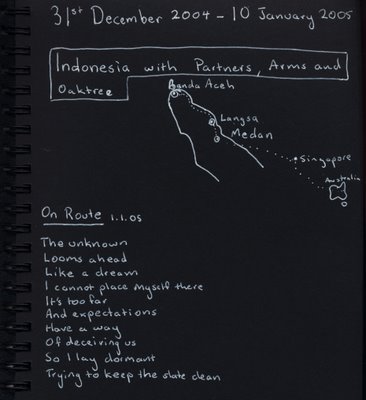 31st December 2004 - 10 January 2005
Indonesia with Partners, Arms and
Oaktree
Banda Aceh
Langsa
Medan
Singapore
Australia
On Route 1.1.05
The unknown
Looms ahead
Like a dream
I cannot place myself there
It's too far
And expectations
Have a way
Of deceiving us
So I lay dormant
Trying to keep the slate clean